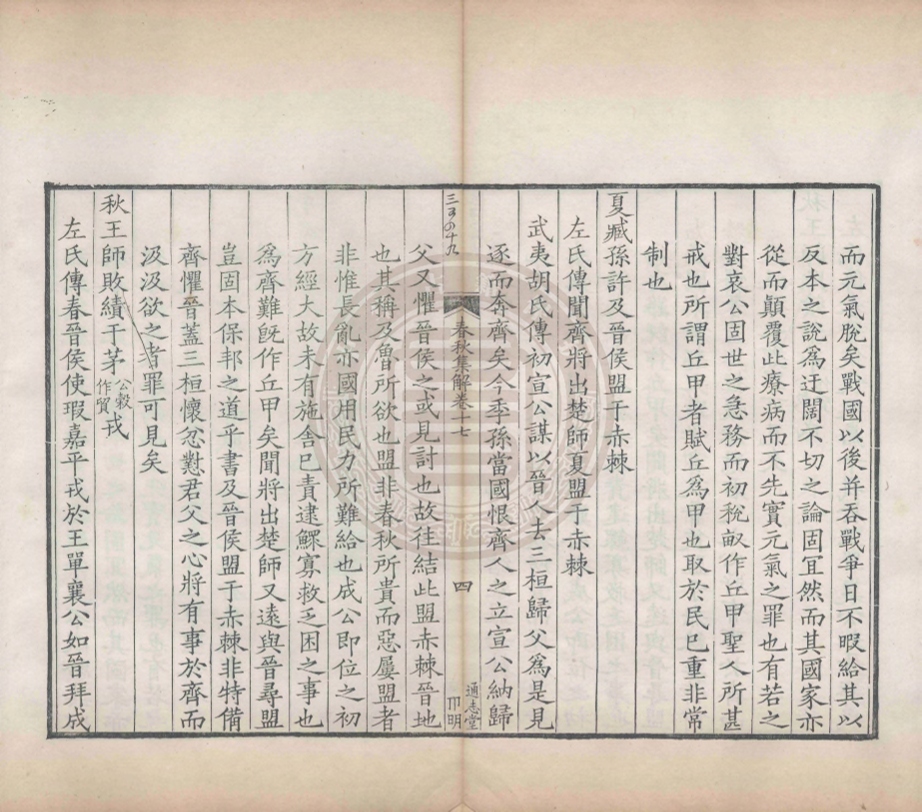 而元氣脫矣戰國以後并吞戰爭日不暇給其以
反本之說爲迂闊不切之論固宜然而其國家亦
從而顚覆此療病而不先實元氣之罪也有若之
對哀公固世之急務而初稅畝作丘甲聖人所甚
戒也所謂丘甲者賦丘爲甲也取於民已重非常
制也
夏臧孫許及晉侯盟于赤棘
左氏傳聞齊將出楚師夏盟于赤棘
武夷胡氏傳初宣公謀以晉人去三桓歸父爲是見
逐而奔齊矣今季孫當國恨齊人之立宣公納歸
春秋集解卷十七
四
通志堂
父又懼晉侯之或見討也故往結此盟赤棘晉地
也其稱及魯所欲也盟非春秋所貴而惡屢盟者
非惟長亂亦國用民力所難給也成公即位之初
方經大故未有施舍已責逮鰥寡救乏困之事也
爲齊難旣作丘甲矣聞將出楚師又遠與晉尋盟
豈固本保邦之道乎書及晉侯盟于赤棘非特備
齊懼晉蓋三桓懷忿懟君父之心將有事於齊而
汲汲欲之者罪可見矣
秋王師敗績于茅公穀作貿戎
左氏傳春晉侯使瑕嘉平戎於王單襄公如晉拜成